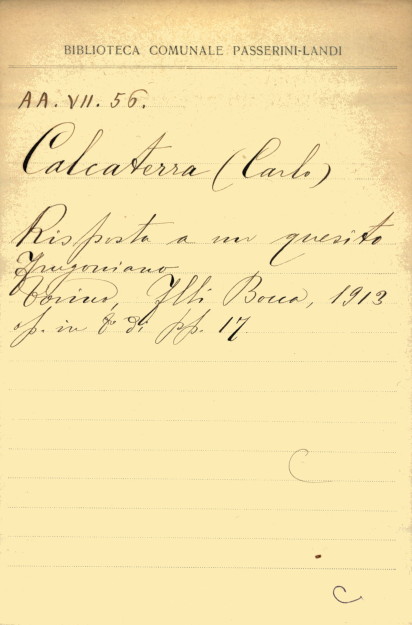 BIBLIOTECA COMUNALE PASSERINI-LANDI
AA. VII. 56.
Calcaterra (Carlo)
Risposta a un quesito
Frugoniano
Torino, Flli Bocca, 1913
op. in 8° di pp. 17
C
C